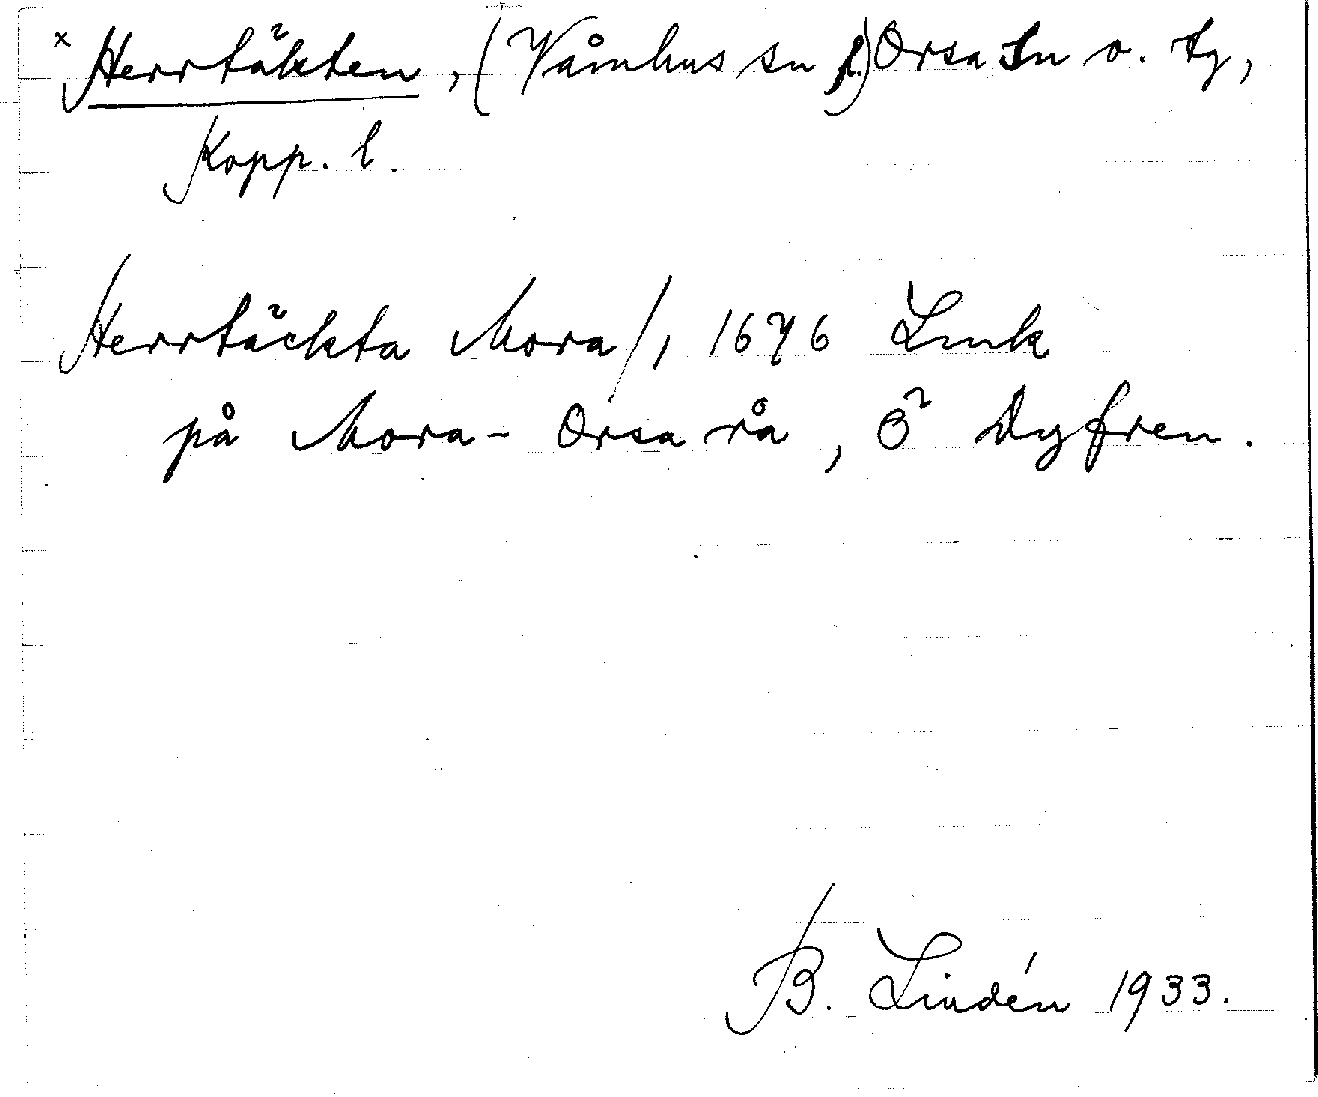 x Herrtäkten, (Våmhus sn) Orsa sn o. tg,
Kopp. l.
Herrtäckta Mora/, 1676 Lmk
på Mora-Orsa rå, Ö Dyfren.
B. Lindén 1933.